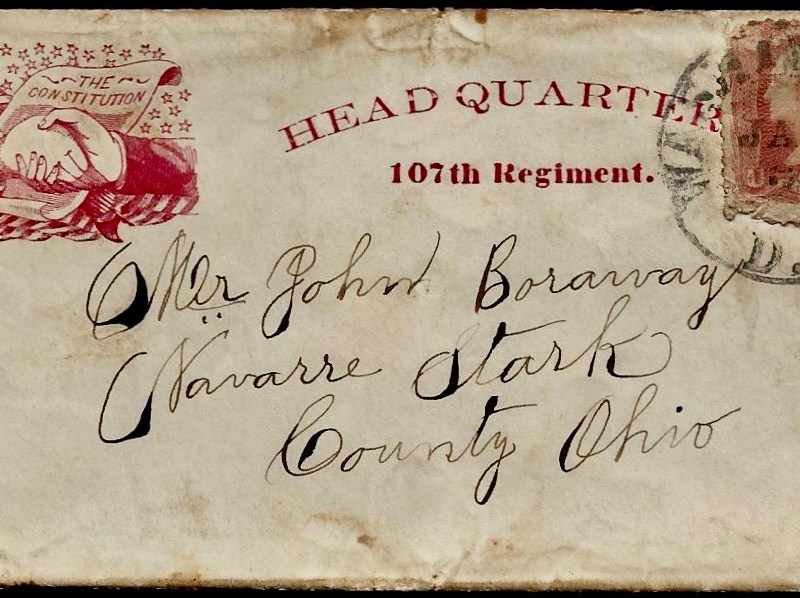 ~ THE ~
CONSTITUTION
HEAD QUARTER
107th Regiment.
D.
Mr John Boraway
Navarre Stark
County Ohio